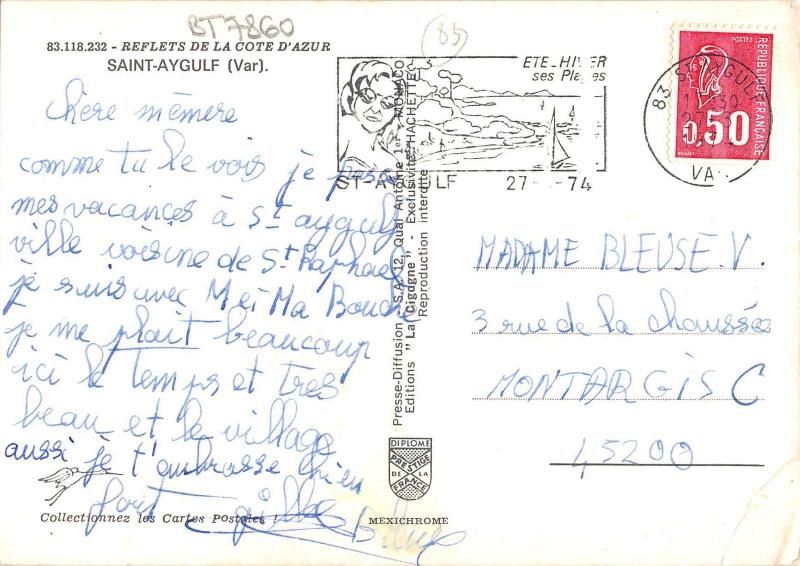 BT7860
85
83.118.232 - REFLETS DE LA COTE D'AZUR
SAINT-AYGULF (Var).
chère mèmère
comme tu le vois je passe
mes vacances à St aygulf
ville voisine de St Raphael
je suis avec M et Ma Bouche
je me plait beaucoup
ici le temps et tres
beau et le village
aussi je t'ambrasse bien
fort Gilles
Bleuse
Collectionnez les Cartes Postales !
Presse-Diffusion S.A. 12, Quai Antoine 1er - MONACO
Editions "La Cigogne" - Exclusivité HACHETTE
Reproduction interdite
DIPLOME
PRESTIGE
DE LA
FRANCE
MEXICHROME
ETE_HIVER
ses Plages
ST-AYGULF 27 - -74
83 ST AYGULF
VAR
POSTES
REPUBLIQUE FRANÇAISE
0,50
MADAME BLEUSE.V.
3 rue de la chaussée
MONTARGIS C
45200